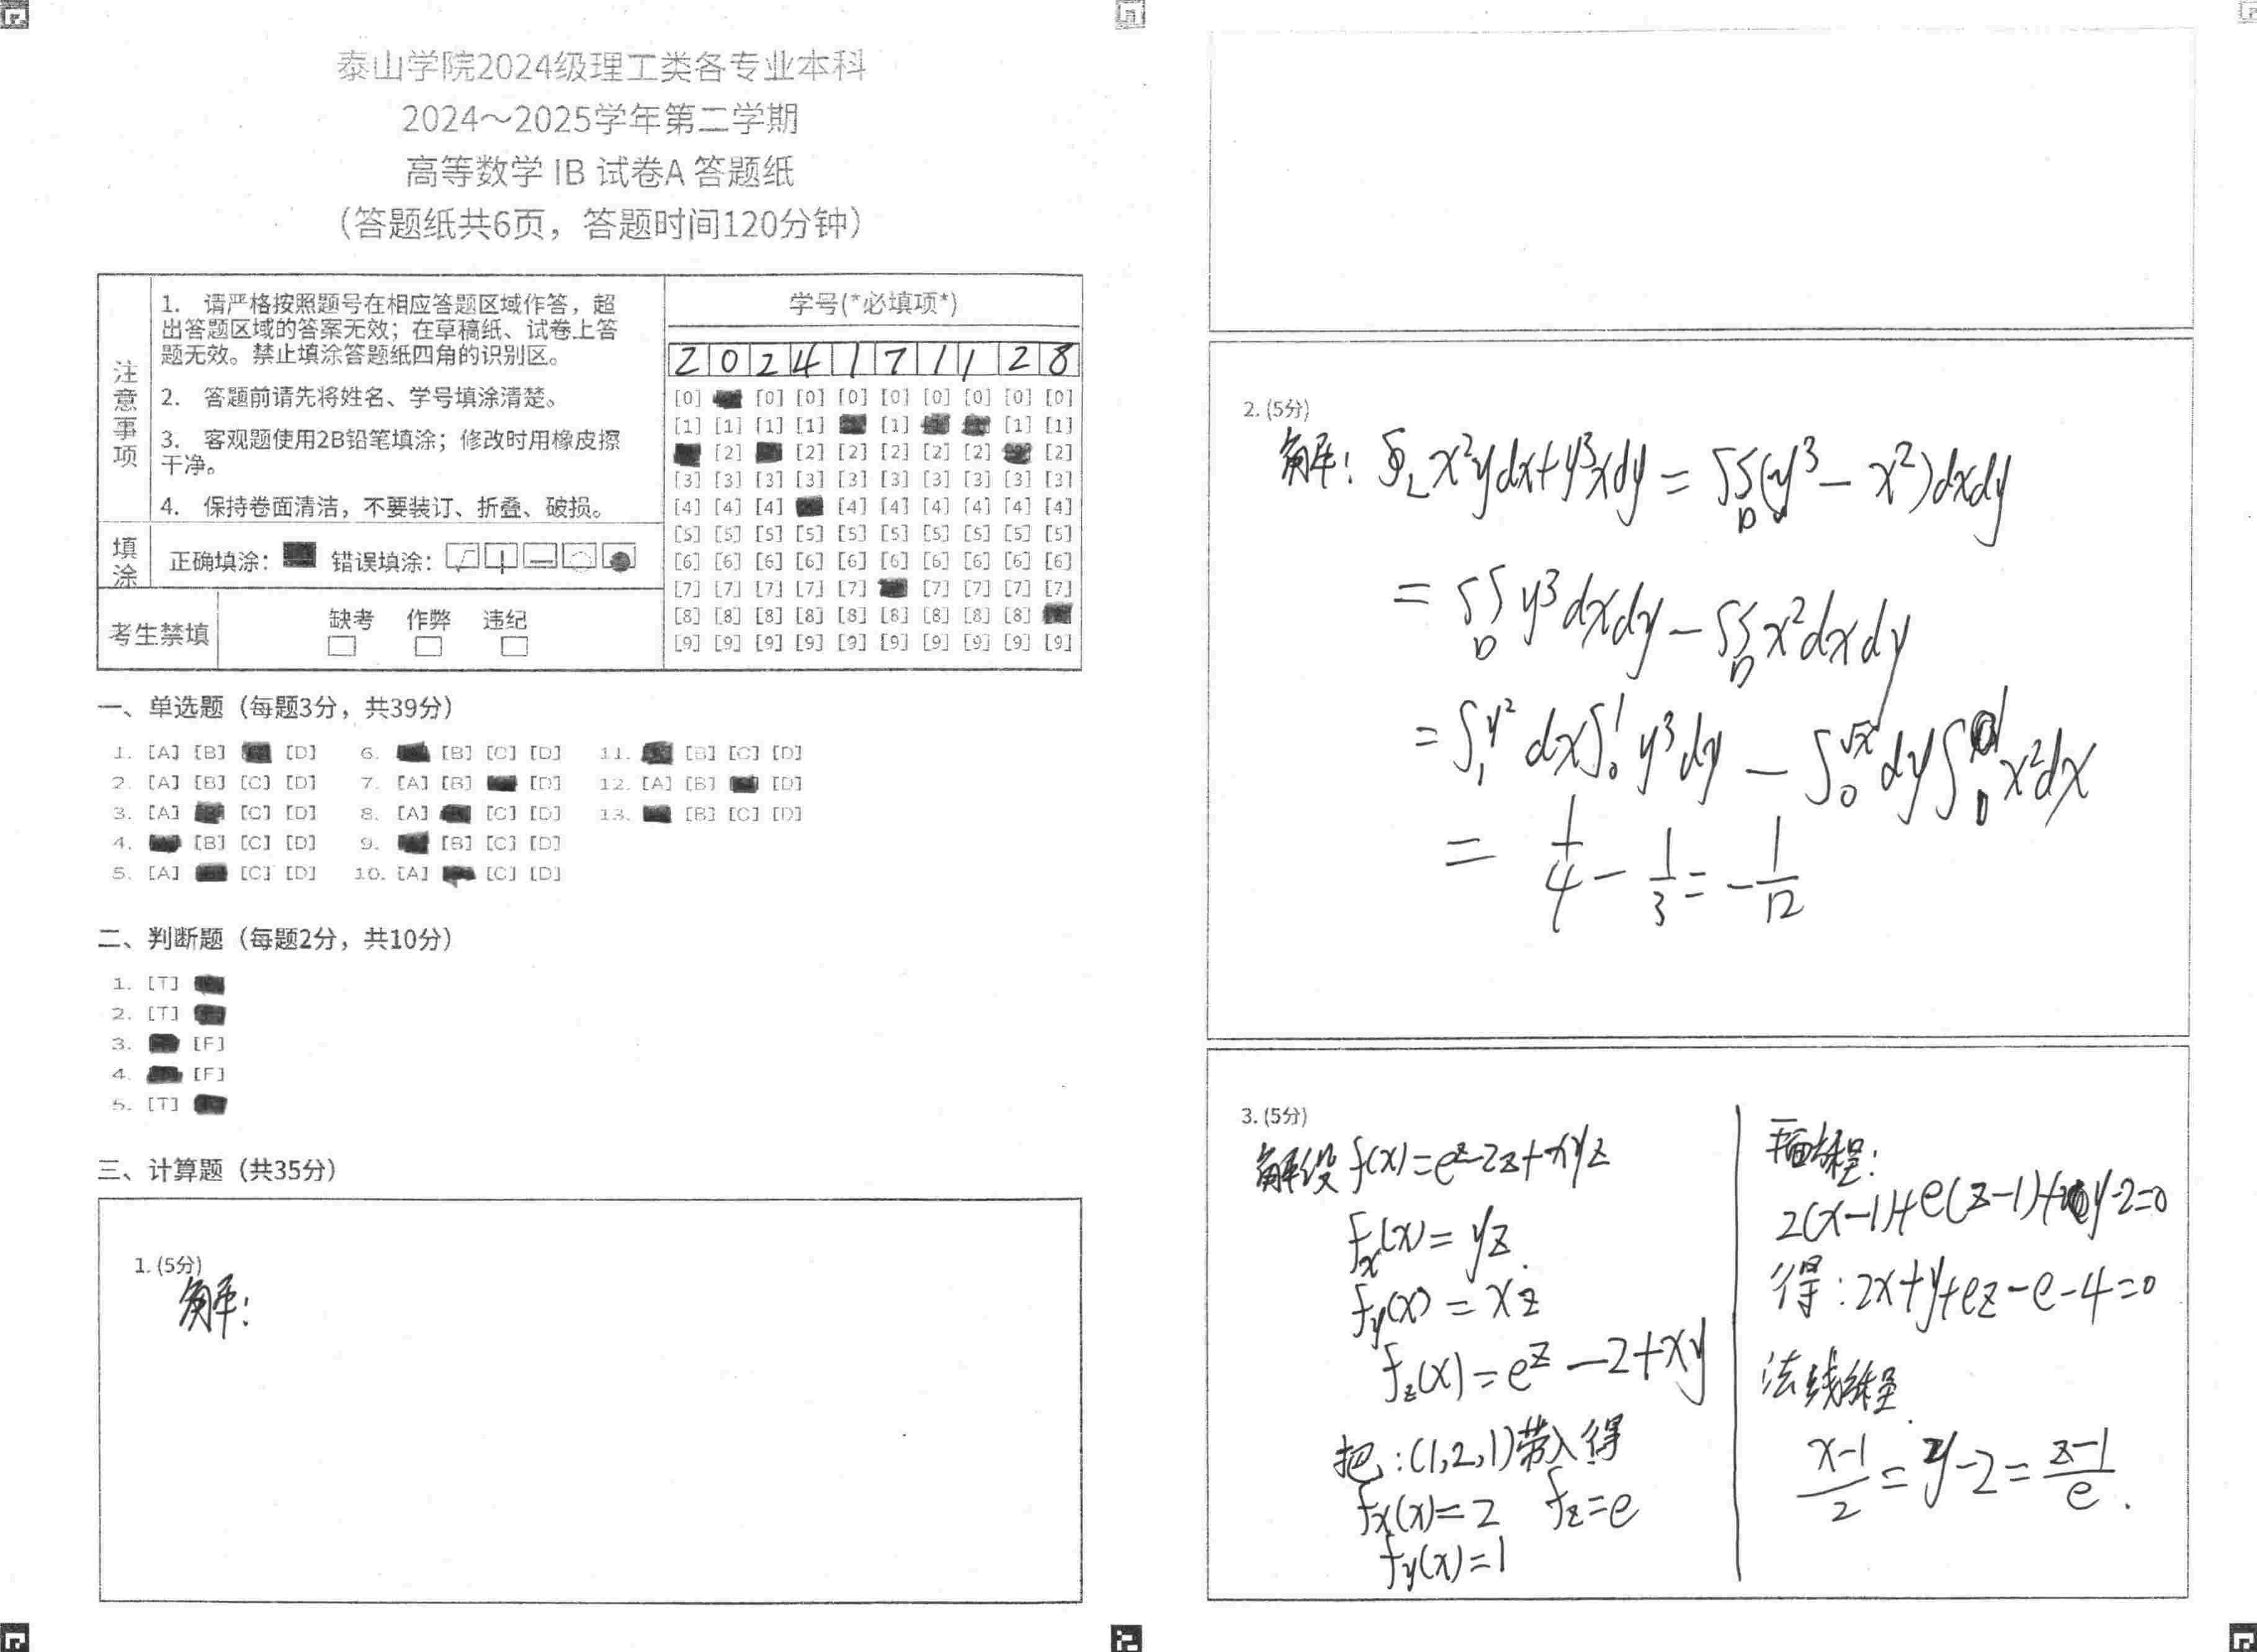 泰山学院2024级理工类各专业本科
2024～2025学年第二学期
高等数学 IB 试卷A 答题纸
（答题纸共6页，答题时间120分钟）
注意事项
1. 请严格按照题号在相应答题区域作答，超
出答题区域的答案无效；在草稿纸、试卷上答
题无效。禁止填涂答题纸四角的识别区。
2. 答题前请先将姓名、学号填涂清楚。
3. 客观题使用2B铅笔填涂；修改时用橡皮擦
干净。
4. 保持卷面清洁，不要装订、折叠、破损。
填涂 正确填涂： 错误填涂：
考生禁填 缺考 作弊 违纪
学号(*必填项*)
2 0 2 4 1 7 1 1 2 8
[0] [0] [0] [0] [0] [0] [0] [0] [0]
[1] [1] [1] [1] [1] [1] [1]
[2] [2] [2] [2] [2] [2] [2]
[3] [3] [3] [3] [3] [3] [3] [3] [3] [3]
[4] [4] [4] [4] [4] [4] [4] [4] [4]
[5] [5] [5] [5] [5] [5] [5] [5] [5] [5]
[6] [6] [6] [6] [6] [6] [6] [6] [6] [6]
[7] [7] [7] [7] [7] [7] [7] [7] [7]
[8] [8] [8] [8] [8] [8] [8] [8] [8]
[9] [9] [9] [9] [9] [9] [9] [9] [9] [9]
一、单选题（每题3分，共39分）
1. [A] [B] [D] 6. [B] [C] [D] 11. [B] [C] [D]
2. [A] [B] [C] [D] 7. [A] [B] [D] 12. [A] [B] [D]
3. [A] [C] [D] 8. [A] [C] [D] 13. [B] [C] [D]
4. [B] [C] [D] 9. [B] [C] [D]
5. [A] [C] [D] 10. [A] [C] [D]
二、判断题（每题2分，共10分）
1. [T]
2. [T]
3. [F]
4. [F]
5. [T]
三、计算题（共35分）
1. (5分)
解:
2. (5分)
解: ∮_L x²ydx+y³xdy = ∬_D (y³ - x²)dxdy
= ∬_D y³dxdy - ∬_D x²dxdy
= ∫₁^{y²} dx∫₀¹ y³dy - ∫₀^{√x} dy∫₀¹ x²dx
= 1/4 - 1/3 = -1/12
3. (5分)
解设 f(x)=e^z-2z+xyz
f_x(x)= yz.
f_y(x) = xz
f_z(x)=e^z -2+xy
把:(1,2,1)带入得
f_x(x)=2 f_z=e
f_y(x)=1
平面方程:
2(x-1)+e(z-1)+y-2=0
得: 2x+y+ez-e-4=0
法线方程.
(x-1)/2 = y-2 = (z-1)/e .